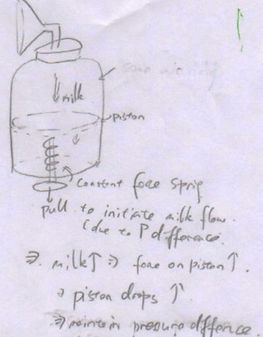 milk
piston
constant force sprig
pull to initiate milk flow.
(due to P difference.
⇒ milk↑ ⇒ force on piston↑.
⇒ piston drops ↑
⇒ maintain pressure difference.